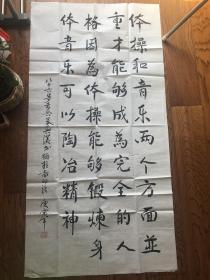 体操和音乐两个方面並
重才能够成為完全的人
格因為体操能够锻煉身
体音乐可以陶冶精神
八十六岁